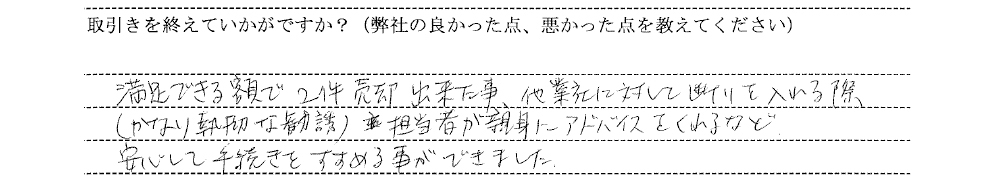 取引きを終えていかがですか？（弊社の良かった点、悪かった点を教えてください）
満足できる額で2件売却出来た事、他業社に対して断りを入れる際、
（かなり執拗な勧誘）担当者が親身にアドバイスをくれるなど
安心して手続きをすすめる事ができました。